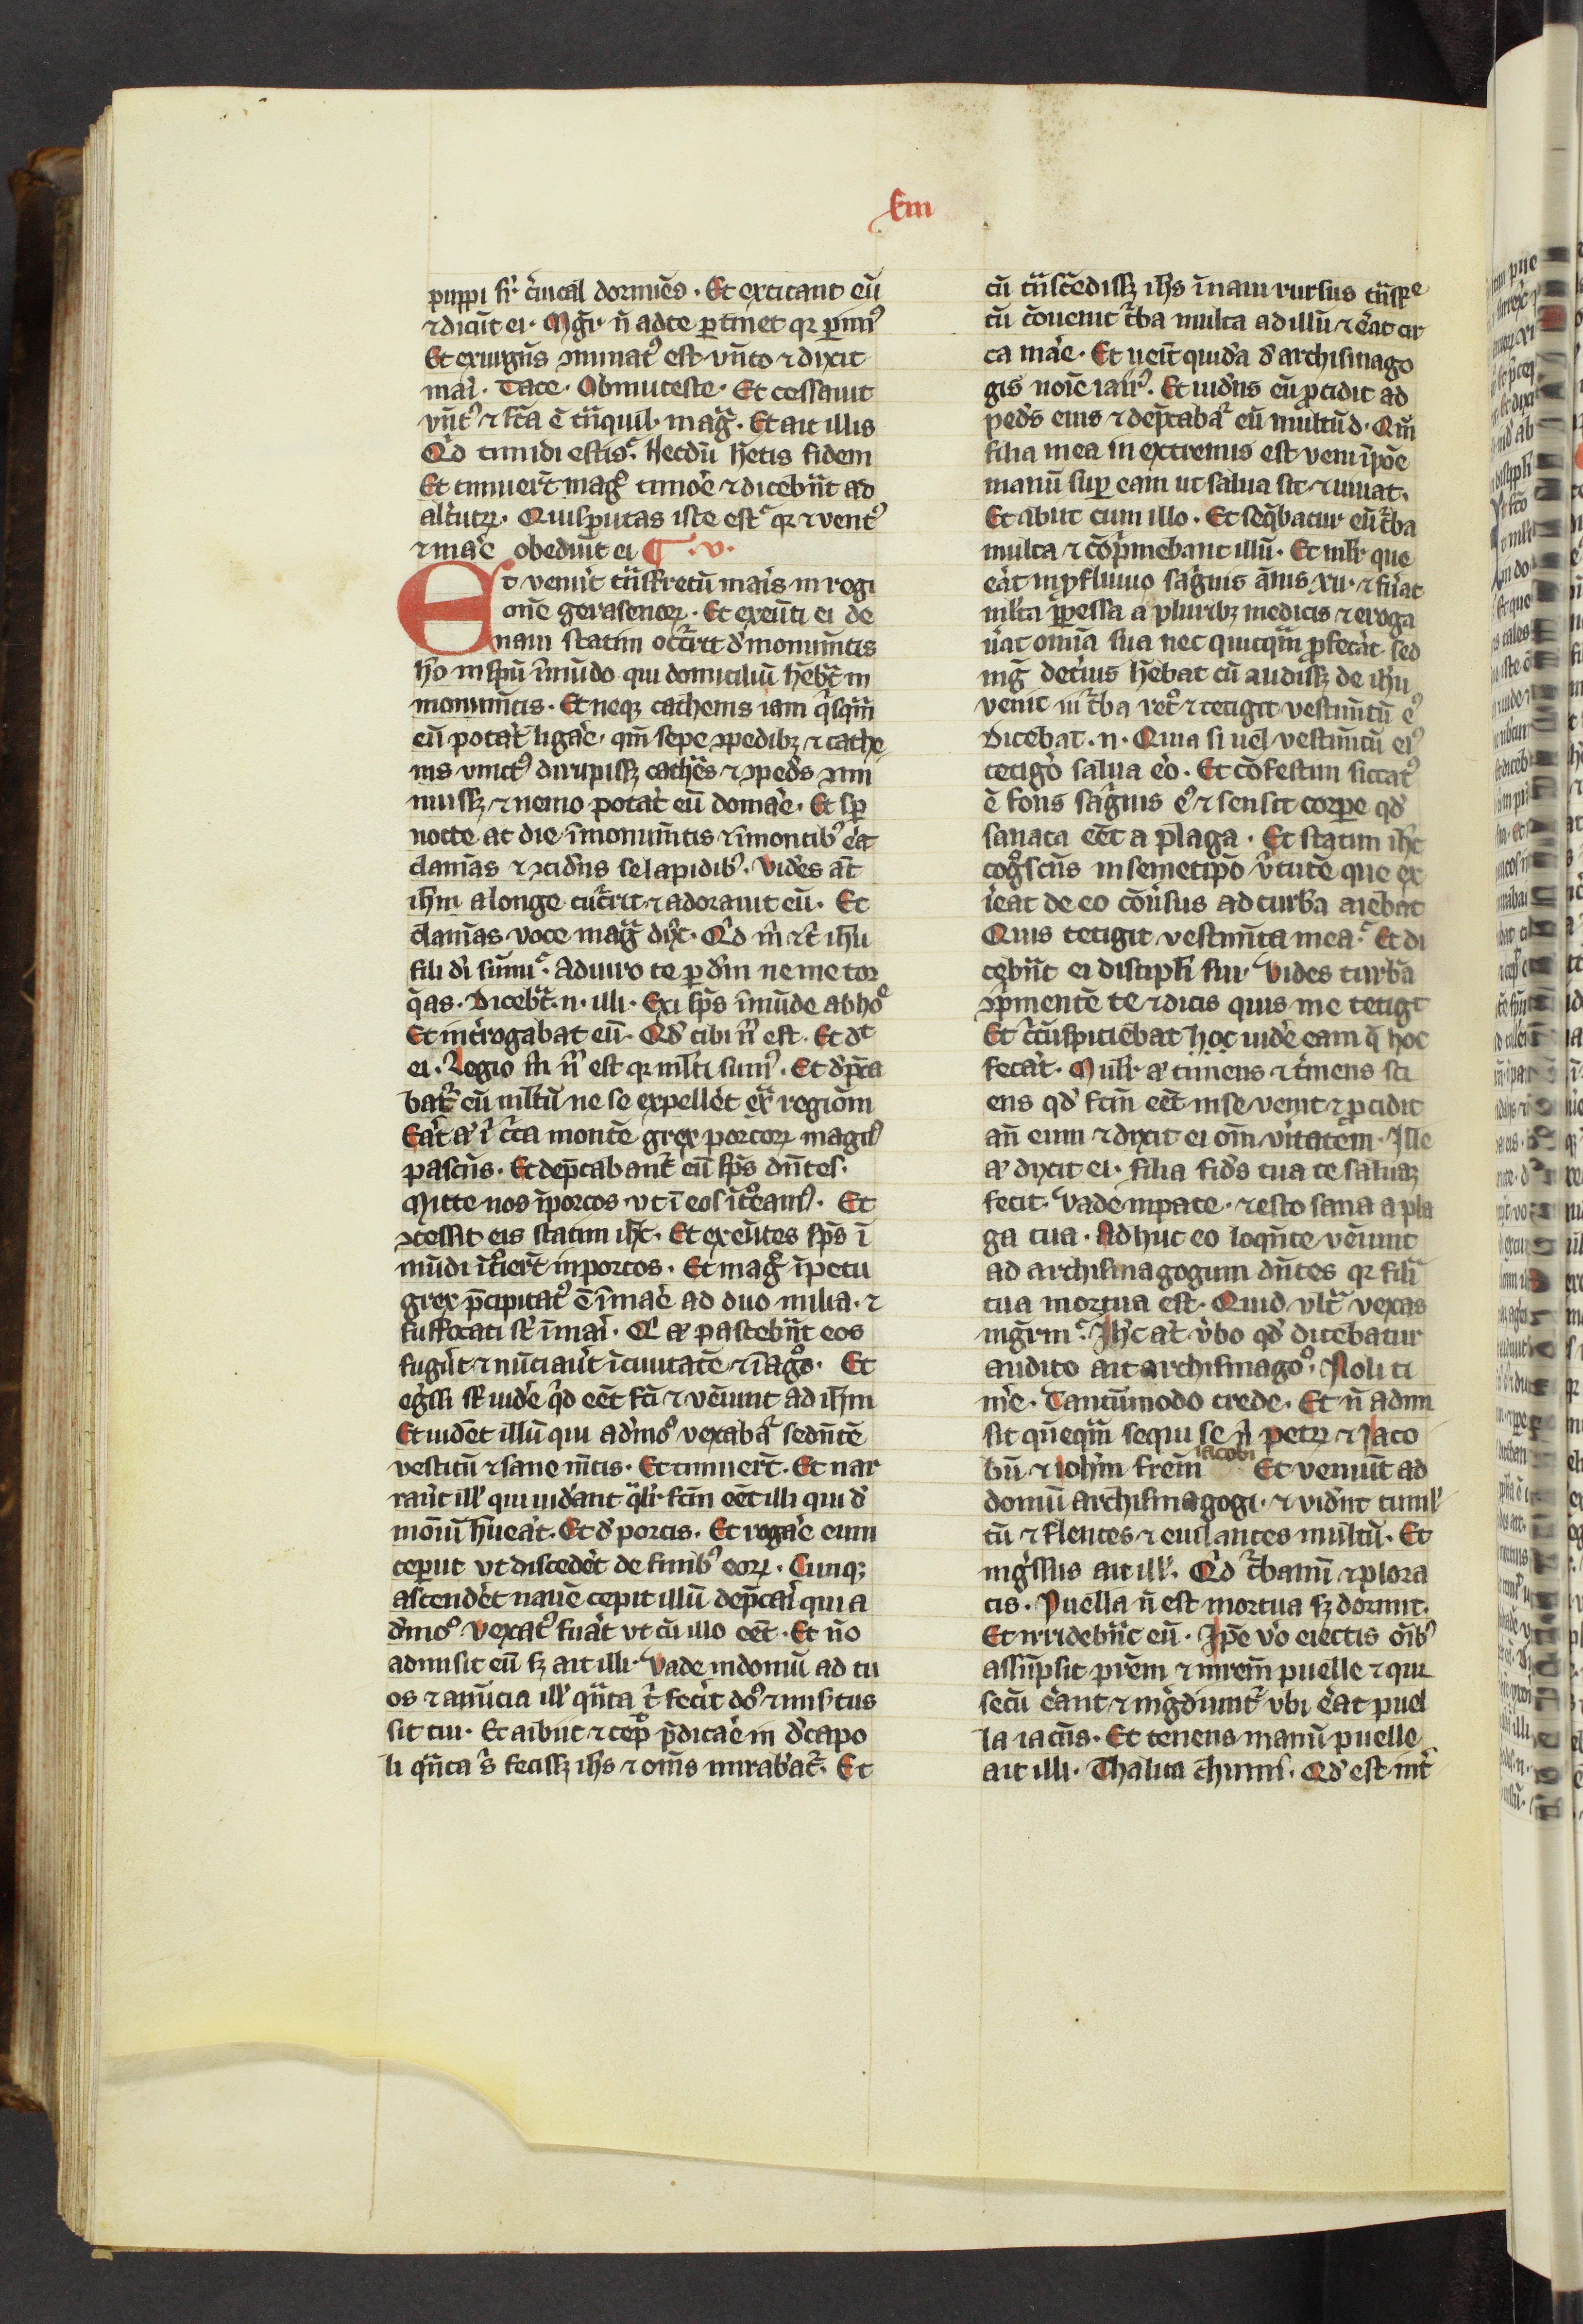 puppi sr̄ c̄uical dormiēs. Et excitant eū
⁊ dicūt ei. Mgr̄ n̄ ad te ptinet qꝛ perim⁹
Et exurgēs ꝯminat⁹ est vn̄to ⁊ dixit
mari. Tace. Obmutesce. Et cessauit
vn̄t⁹ ⁊ fc̄a ē tn̄quill. mag̃. Et ait illis
Qd̓ timidi estis. Necdū hētis fidem
Et timuer̄t mag̃ timore ⁊ dicebn̄t ad
alt̓utꝝ. Quis putas iste est. qꝛ ⁊ vent⁹
⁊ mare obediūt ei ¶ .v.
Et venit̄ tn̄s fretū maris in regi
onē gerasenoꝝ. Et exeūti ei de
naui statim occ̄rit d̓ monumētis
hō in spū īmūdo qui domiciliū hēbat in
monumētis. Et neqꝫ cathenis iam q̄sqm̄
eū pot̓at ligare. qm̄ sepe ꝯpedibꝫ ⁊ cathe
nis vinct⁹ dirupissꝫ cathēs ⁊ ꝯpedes ꝯmi
nuissꝫ ⁊ nemo pot̓at eū domare. Et sp̄
nocte ac die ī monumētis ⁊ ī montib⁹ er̄at
clamās ⁊ ꝯcidēs se lapidib⁹. Vidēs aūt
ihm̄ a longe cuc̄rrit ⁊ adorauit eū. Et
clamās voce mag̃ dix̄t. Qd̓ m̄ ⁊ t ihū
fili di sūmi. Adiuro te p dm̄ ne me tor
q̄as. Dicebat .n. illi. Exi sp̄s īmūde ab hoīe
Et int̓rogabat eū. Qd̓ tibi n̄ est. Et dt
ei. Legio m̄ n̄ est qꝛ ml̄ti sum⁹. Et dep̄ca
bat̓ eū ml̄tū ne se expell̓et ex̄ regiōm
Erat aꝰ ī c̄rca montē grex porcoꝝ magn⁹
pascēs. Et dep̄cabant̓ eū sp̄s dn̄tes.
Mitte nos ī porcos vt ī eos īt̓eam⁹. Et
ꝯcessit eis statim ihc̄. Et exeūtes sp̄s ī
mūdi īt̓ier̄t in porcos. Et mag̃ īpetu
grex p̄cipitat⁹ ē ī mare ad duo milia. ⁊
suffocati sr̄ ī mari. Qi aꝰ pascebn̄t eos
fuger̄t ⁊ nūciauer̄t ī ciuitatē ⁊ ī agros. Et
eg̓ssi sr̄ videre qd̓ eēt fc̄i ⁊ veniūt ad ihm̄
Et uidēt illū qui a d̓mō vexabat̓ sedn̄tē
vestitū ⁊ sane mētis. Et timuer̄t. Et nar
rauer̄t ill̓ qui uid̓ant ql̄r fcm̄ eēt illi qui d̓
moniū hūerat. Et d̓ porcis. Et rogare eum
ceperūt vt disced̓et de finib⁹ eoꝝ. Cunqꝫ
ascend̓et nauē cepit illū dep̄cari qui a
d̓mō vexat⁹ fuerat vt cū illo eēt. Et nō
admisit eū sꝫ ait illi. Vade in domū ad tu
os ⁊ anūcia ill̓ qn̄ta t fec̓it dō ⁊ mis̓tus
sit tui. Et abiit ⁊ cep̄ p̄dicare in d̓capo
li qn̄ta s̓ fecissꝫ ihs̄ ⁊ om̄s mirabāt̓. Et
kiii
cū tn̄scēdissꝫ ihs̄ ī naui rursus tn̄s fre
tū cōuenit t̓ba multa ad illū ⁊ er̄at cir
ca mare. Et ueīt quidā d̓ archisinago
gis noīe iair⁹. Et uid̓ns eū pcidit ad
ped̓s eius ⁊ dep̄cabat̓ eū multū d. Qm̄
filia mea in extremis est veni īpōe
manū sup̄ eam ut salua sit ⁊ uiuat.
Et abiit cum illo. Et seq̄batur eū t̓ba
multa ⁊ cōp̓mebant illū. Et ml̄r que
er̄at in pfluuio sāguis ānis xii. ⁊ fūat
ml̄ta ppessa a pluribꝫ medicis ⁊ eroga
ūat omīa sua nec quicqm̄ pfec̓at sed
mag̃ det̓ius hēbat cū audissꝫ de ihū
venit in t̓ba ret̓ ⁊ tetigit vestimētū e⁹
Dicebat .n. Quia si uel vestimētū ei⁹
tetig̓o salua ero. Et cōfestim siccat⁹
ē fons sāguis e⁹ ⁊ sensit corpe qd̓
sanata eēt a plaga. Et statim ihc̄
cog̓scēs in semetipō v̓tutē que ex
ierat de eo cōu̓sus ad turbā aiebat
Quis tetigit vestimēta mea. Et di
cebn̄t ei discipli sui. Vides turbā
ꝯp̓mentē te ⁊ dicis quis me tetigt
Et c̄cūspiciebat hoc uidere eam q̄ hoc
fec̓at. Mulr̄ aꝰ timens ⁊ t̓mens sci
ens qd̓ fcm̄ eēt in se venit ⁊ pcidit
an̄ eum ⁊ dixit ei om̄ v̓itatem. Ille
aꝰ dixit ei. Filia fid̓s tua te saluaꝫ
fecit. Vade in pace. ⁊ esto sana a pla
ga tua. Ad huc eo loqn̄te veniunt
ad archisinagogum dn̄tes qꝛ fili
tua mortua est. Quid vlt̓ vexas
mgr̄m. Ihc̄ aꝰt v̓bo qd̓ dicebatur
audito ait archisinagō. Noli ti
m̓e. Tantūmodo crede. Et n̄ admi
sit quēqm̄ sequi se n̓ petꝝ ⁊ Iaco
bū ⁊ iohm̄ frēm iacobi Et veniūt ad
domū archisinagogi. ⁊ vid̓nt tumul
tū ⁊ flentes ⁊ eiulantes multū. Et
ing̓ssus ait ill̓. Qd̓ t̓bamī ⁊ plora
tis. Puella n̄ est mortua sꝫ dormit.
Et irridebn̄t eū. Ipē v̓o eiectis oīb⁹
assūpsit p̄rem ⁊ mr̄em puelle ⁊ qui
secū er̄ant ⁊ ing̓diunt̓ vbi er̄at puel
la iacēs. Et tenens manū puelle
ait illi. Thalita chumi. Qd̓ est int̓